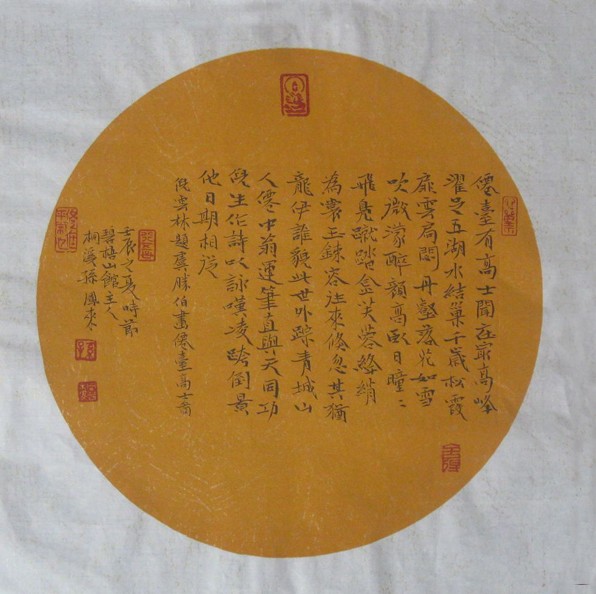 僊臺有高士閒在最高峰
濯足五湖水結巢千歲松霞
扉雲扃閟丹壑落花如雪
吹微濛醉顏高臥日曈〻
飛鳧蹴踏金芙蓉絳綃
為裳玉鍊容往來倏忽其猶
龍伊誰貌此世外踪青城山
人儒中翁運筆直與天同功
倪生作詩以詠嘆凌跨倒景
他日期相從
倪雲林題虞勝伯畫僊臺高士圖
壬辰之夏時節
山館主人
孫鳳